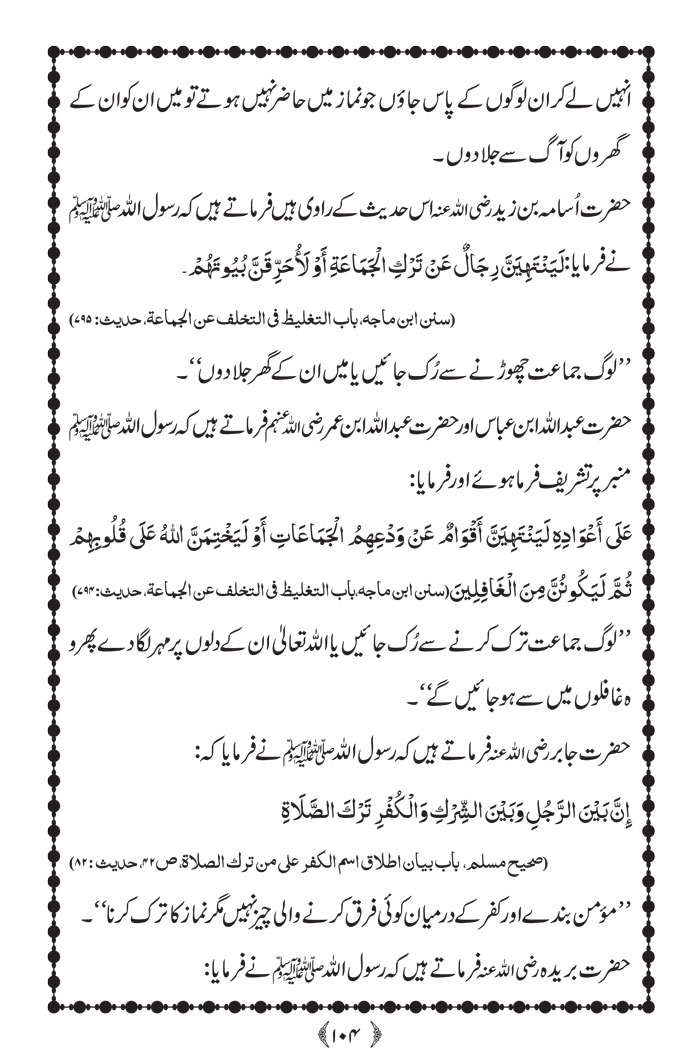 انہیں لے کر ان لوگوں کے پاس جاؤں جو نماز میں حاضر نہیں ہوتے تو میں ان کو ان کے
گھروں کو آگ سے جلا دوں ۔
حضرت اُسامہ بن زید رضی اللہ عنہ اس حدیث کے راوی ہیں فرماتے ہیں کہ رسول اللہ ﷺ
نے فرمایا: لَيَنْتَهِيَنَّ رِجَالٌ عَنْ تَرْكِ الْجَمَاعَةِ أَوْ لَأُحَرِّقَنَّ بُيُوتَهُمْ ۔
(سنن ابن ماجه، باب التغليظ فى التخلف عن الجماعة، حديث: ۷۹۵)
’’لوگ جماعت چھوڑنے سے رُک جائیں یا میں ان کے گھر جلا دوں‘‘ ۔
حضرت عبداللہ ابن عباس اور حضرت عبداللہ ابن عمر رضی اللہ عنہم فرماتے ہیں کہ رسول اللہ ﷺ
منبر پر تشریف فرما ہوئے اور فرمایا:
عَلَى أَعْوَادِهِ لَيَنْتَهِيَنَّ أَقْوَامٌ عَنْ وَدْعِهِمُ الْجَمَاعَاتِ أَوْ لَيَخْتِمَنَّ اللهُ عَلَى قُلُوبِهِمْ
ثُمَّ لَيَكُونُنَّ مِنَ الْغَافِلِينَ (سنن ابن ماجه، باب التغليظ فى التخلف عن الجماعة، حديث: ۷۹۴)
’’لوگ جماعت ترک کرنے سے رُک جائیں یا اللہ تعالیٰ ان کے دلوں پر مہر لگا دے پھر و
ہ غافلوں میں سے ہو جائیں گے‘‘ ۔
حضرت جابر رضی اللہ عنہ فرماتے ہیں کہ رسول اللہ ﷺ نے فرمایا کہ:
إِنَّ بَيْنَ الرَّجُلِ وَبَيْنَ الشِّرْكِ وَالْكُفْرِ تَرْكَ الصَّلَاةِ
(صحيح مسلم، باب بيان اطلاق اسم الكفر على من ترك الصلاة، ص۴۲، حديث: ۸۲)
’’مؤمن بندے اور کفر کے درمیان کوئی فرق کرنے والی چیز نہیں مگر نماز کا ترک کرنا‘‘ ۔
حضرت بریدہ رضی اللہ عنہ فرماتے ہیں کہ رسول اللہ ﷺ نے فرمایا:
﴿۱۰۴﴾